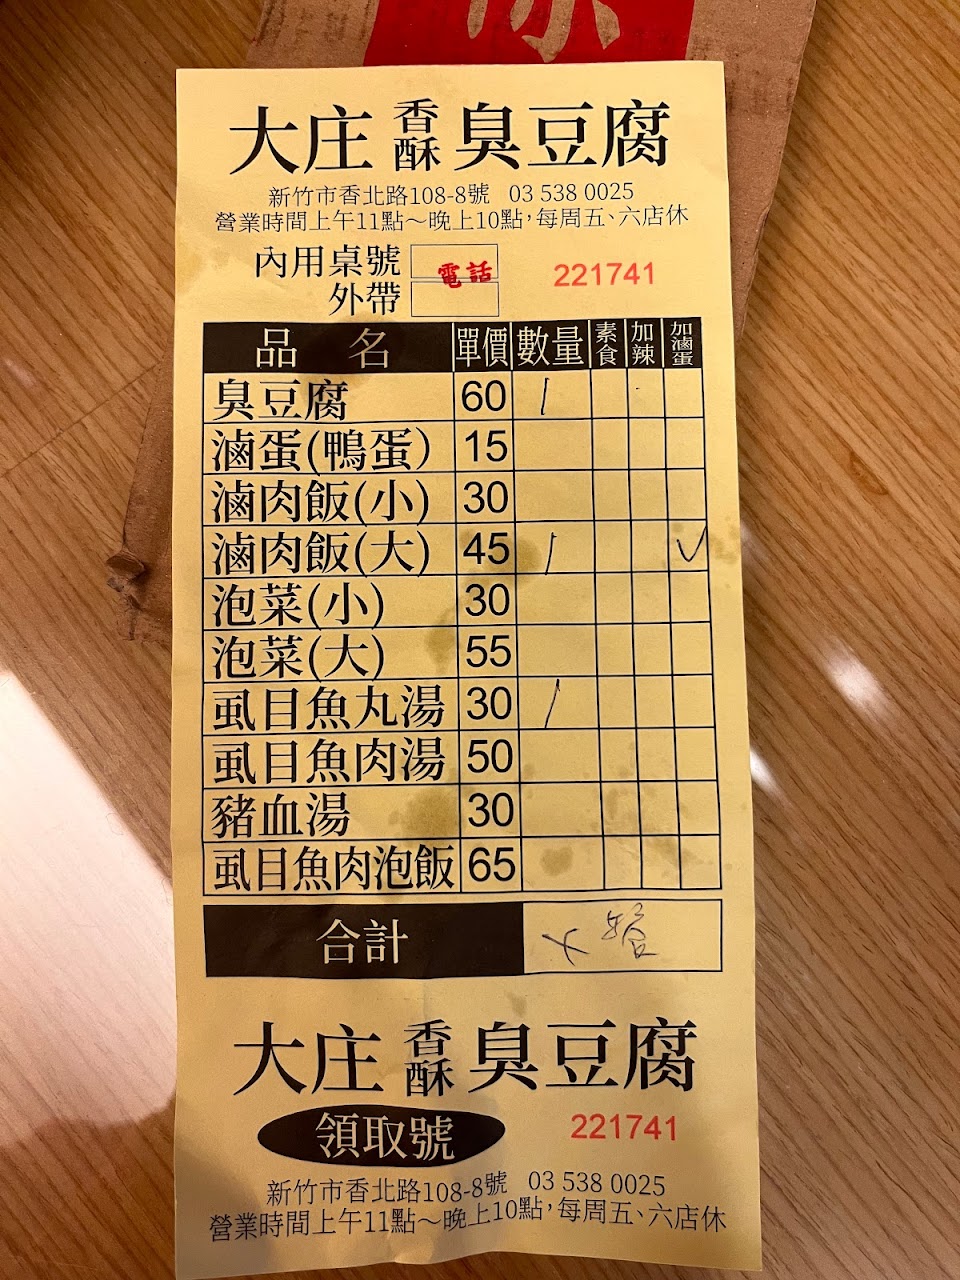 大庄香酥臭豆腐
新竹市香北路108-8號 03 538 0025
營業時間上午11點～晚上10點，每周五、六店休
內用桌號
電話
221741
外帶
品名 單價 數量 素食 加辣 加滷蛋
臭豆腐 60 /
滷蛋(鴨蛋) 15
滷肉飯(小) 30
滷肉飯(大) 45 / V
泡菜(小) 30
泡菜(大) 55
虱目魚丸湯 30 /
虱目魚肉湯 50
豬血湯 30
虱目魚肉泡飯 65
合計
大庄香酥臭豆腐
領取號 221741
新竹市香北路108-8號 03 538 0025
營業時間上午11點～晚上10點，每周五、六店休